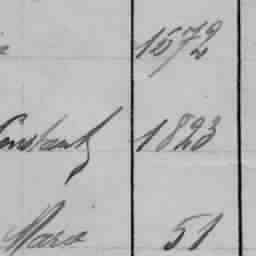 1872
Constant 1823
Mara 51